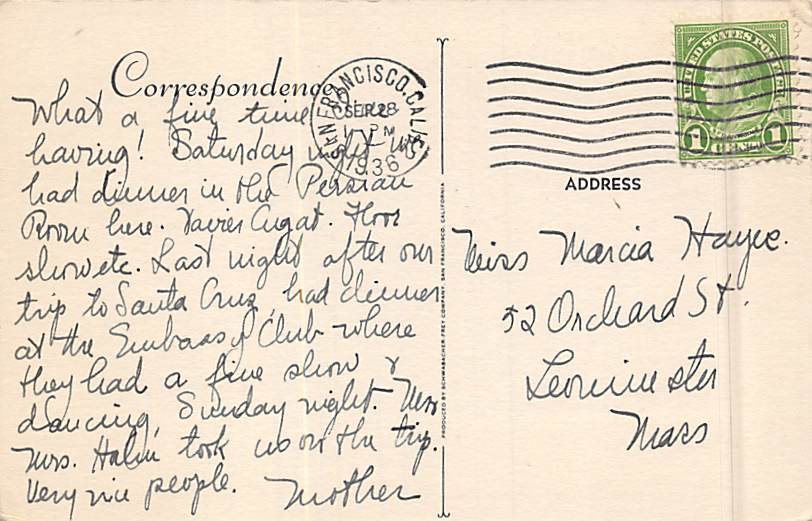 Correspondence
What a fine time
having! Saturday night we
had dinner in the Persian
Room here. Xavier Cugat. Floor
show etc. Last night after our
trip to Santa Cruz, had dinner
at the Embassy Club where
they had a fine show &
dancing, Sunday night.
Mrs. Hahn took us on the trip.
Very nice people. Mother
SAN FRANCISCO, CALIF.
SEP 28
PM
1936
UNITED STATES POSTAGE
1 1
ADDRESS
Miss Marcia Hayes.
52 Orchard St.
Leominster
Mass
PRODUCED BY SCHWABACHER-FREY COMPANY, SAN FRANCISCO, CALIFORNIA